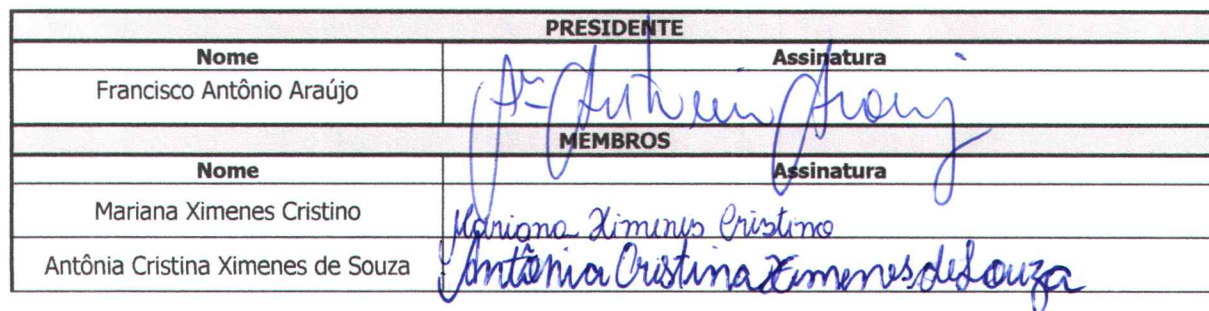 PRESIDENTE
Nome Assinatura
Francisco Antônio Araújo Fco Antônio Araújo
MEMBROS
Nome Assinatura
Mariana Ximenes Cristino Mariana Ximenes Cristino
Antônia Cristina Ximenes de Souza Antônia Cristina Ximenes de Souza